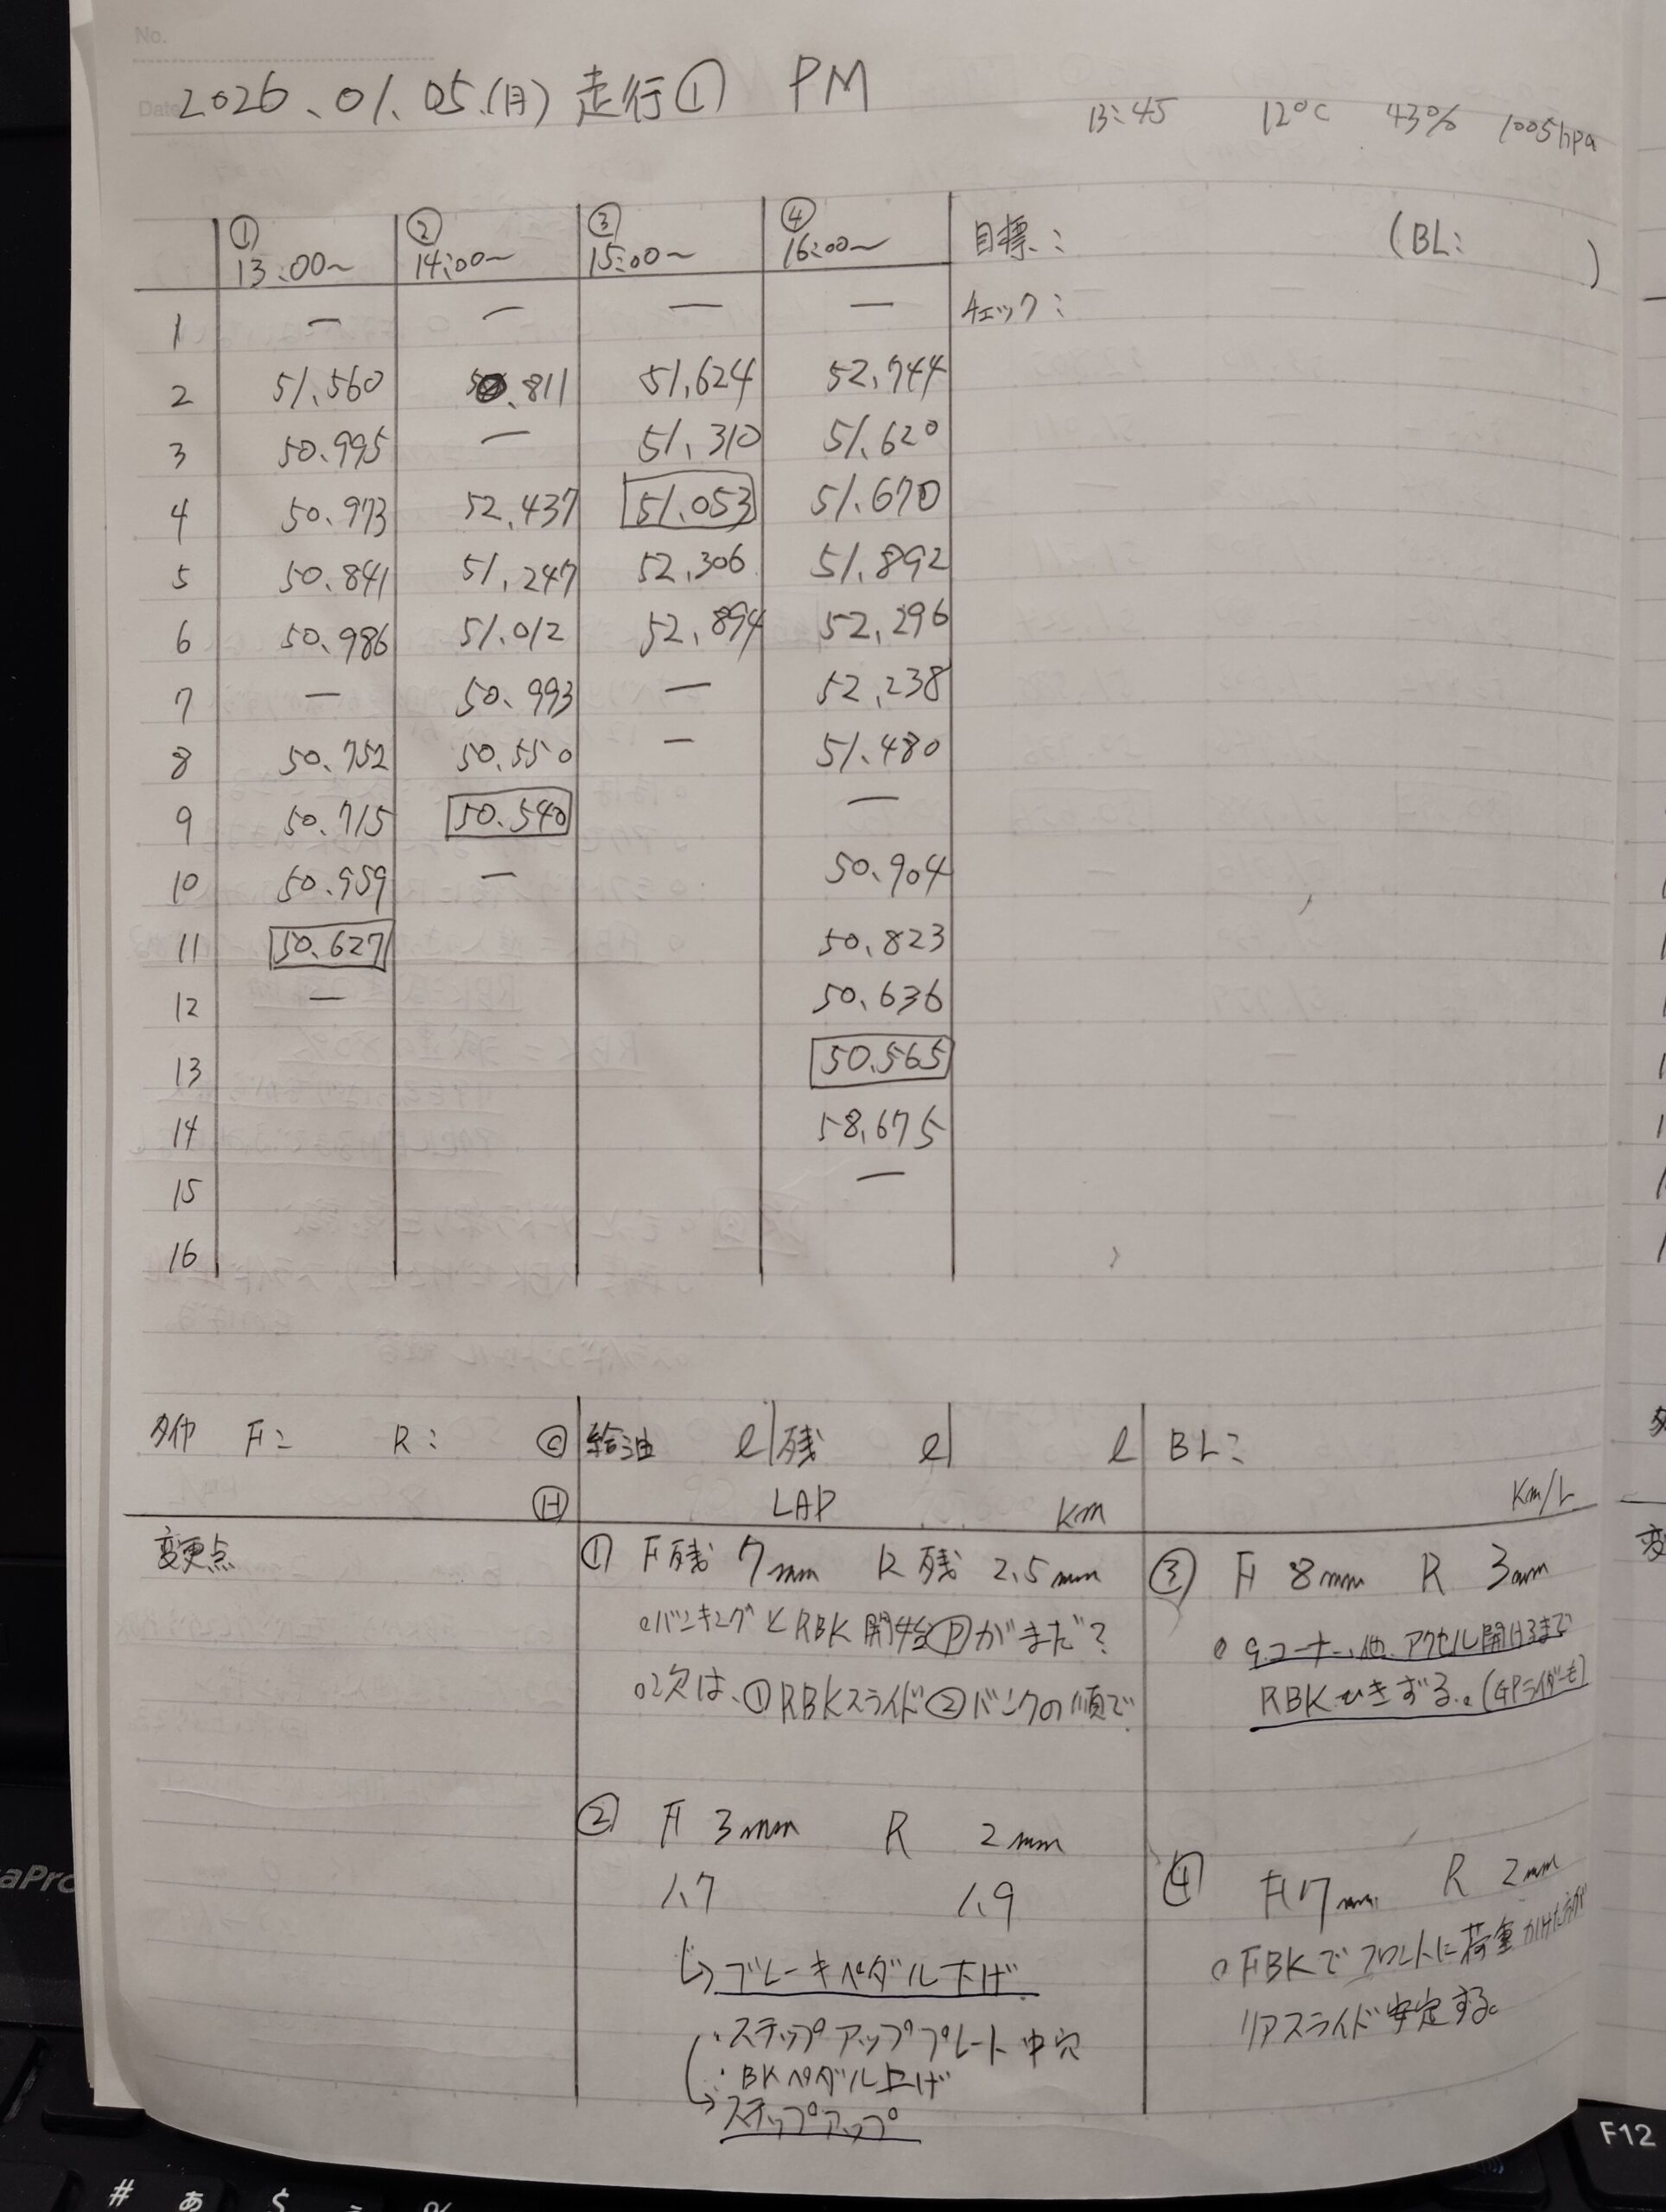 No.
Date
2026.01.05.(月) 走行① PM
13:45 12°C 43% 1005hpa
① ② ③ ④
13:00~ 14:00~ 15:00~ 16:00~
目標: (BL: )
チェック:
1 — — — —
2 51.560 .811 51.624 52.744
3 50.995 — 51.310 51.620
4 50.973 52.437 51.053 51.670
5 50.841 51.247 52.306 51.892
6 50.986 51.012 52.894 52.296
7 — 50.993 — 52.238
8 50.752 50.550 — 51.480
9 50.715 50.540 —
10 50.959 — 50.904
11 50.627 50.823
12 — 50.636
13 50.565
14 58.675
15 —
16
タイヤ F: R: Ⓒ 給油 ℓ 残 ℓ ℓ BL:
Ⓗ LAP km Km/L
変更点
① F残 7mm R残 2.5mm
○バンキングとRBK開始Ⓟがまだ?
○次は、①RBKスライド②バンクの順で
② F 3mm R 2mm
1.7 1.9
↳ブレーキペダル下げ
・ステップアッププレート中穴
・BKペダル上げ
→ステップアップ
③ F 8mm R 3mm
○9コーナー、他、アクセル開けるまで
RBKひきずる。(GPライダーも)
④ F 7mm R 2mm
○FBKでフロントに荷重かけた方が
リアスライド安定する。
F12
# あ $